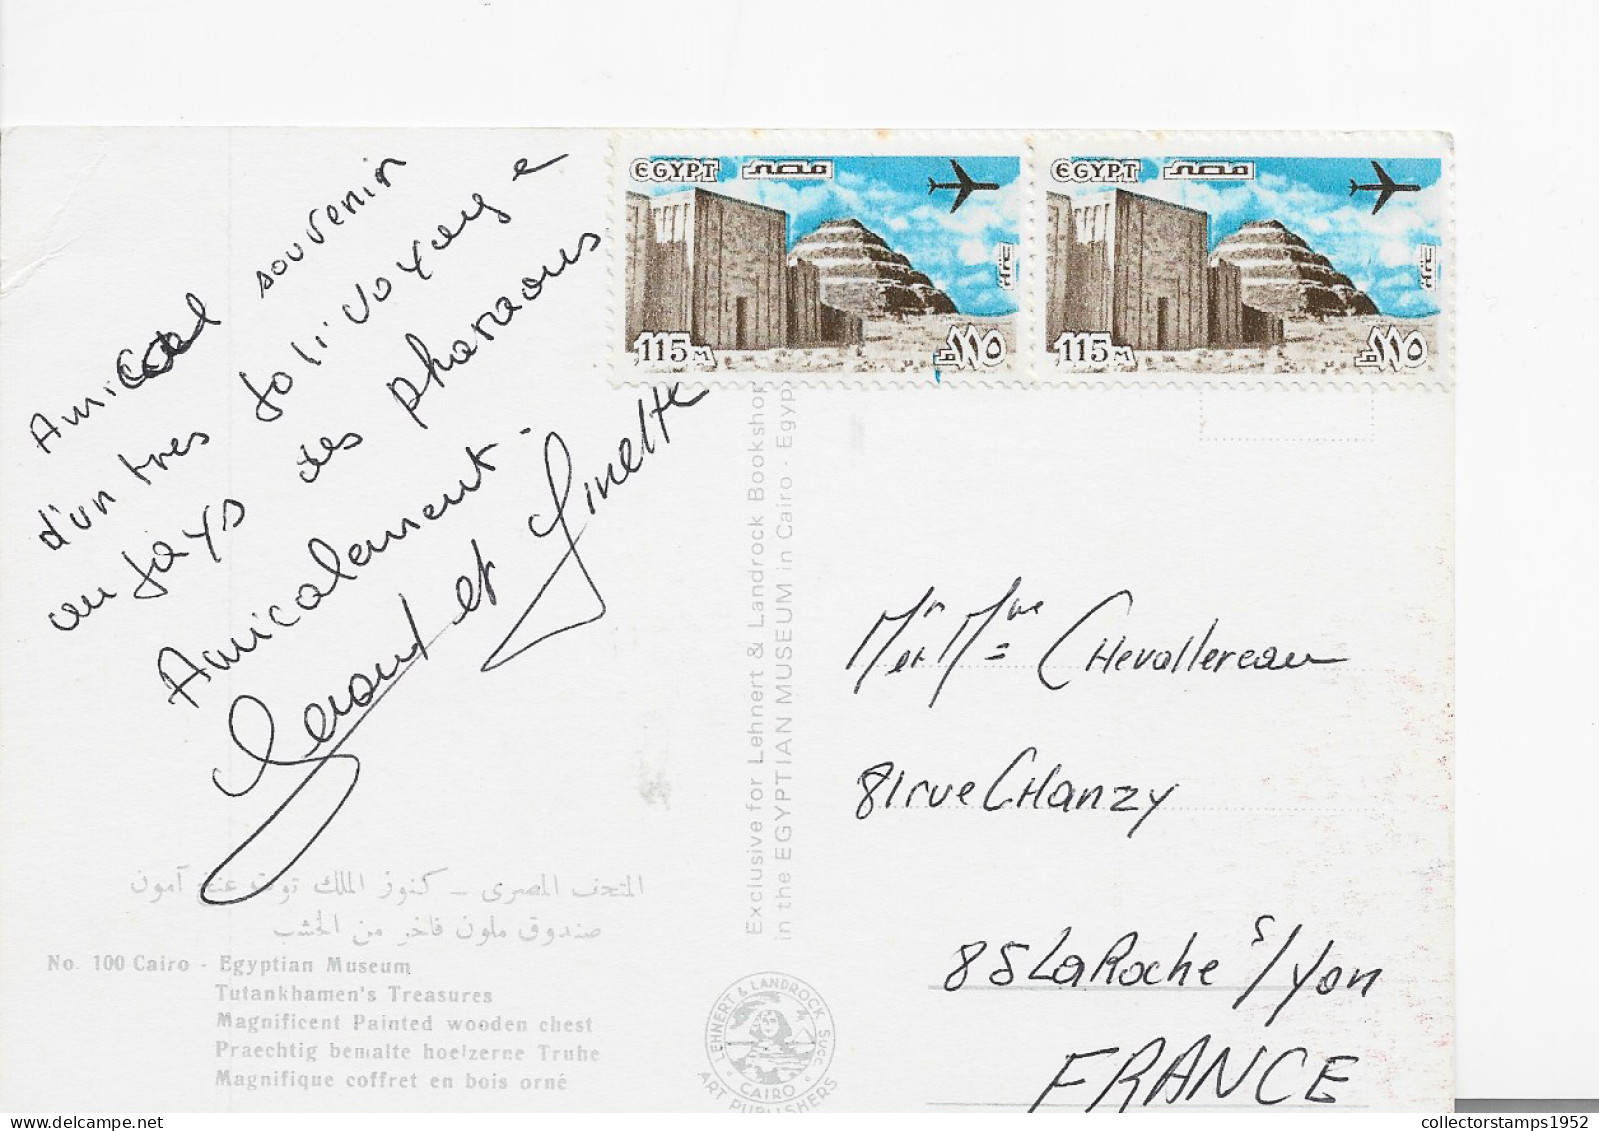 Amical souvenir
d'un tres joli voyage
au pays des pharaons
Amicalement.
Gerard et Ginette
المتحف المصرى - كنوز الملك توت عنخ آمون
صندوق ملون فاخر من الخشب
No. 100 Cairo - Egyptian Museum
Tutankhamen's Treasures
Magnificent Painted wooden chest
Praechtig bemalte hoelzerne Truhe
Magnifique coffret en bois orné
Exclusive for Lehnert & Landrock Bookshop
in the EGYPTIAN MUSEUM in Cairo - Egyp
LEHNERT & LANDROCK SUCC.
CAIRO
ART PUBLISHERS
EGYPT مصر
115 M ١١٥
EGYPT مصر
115 M ١١٥
Mr et Mme CHevallereau
81 rue CHanzy
85 La Roche s/yon
FRANCE
collectorstamps1952